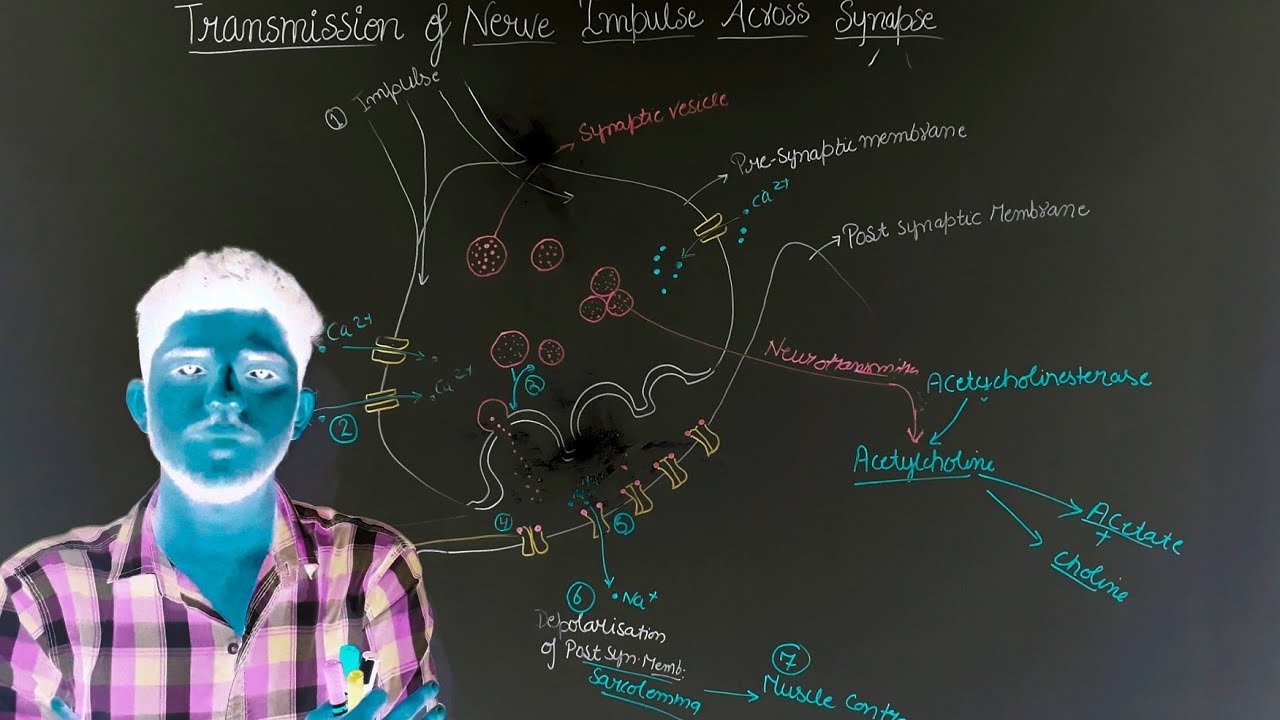 Transmission of Nerve Impulse Across Synapse
① Impulse
Synaptic vesicle
Pre-Synaptic membrane
Ca2+
Post Synaptic Membrane
Ca2+
Ca2+
②
③
Neurotransmitte
Acetycholinesterase
Acetylcholine
Acetate
+
Choline
④
⑤
⑥
Na+
Depolarisation
of Post Syn. Memb.
Sarcolemma
⑦
Muscle Contr